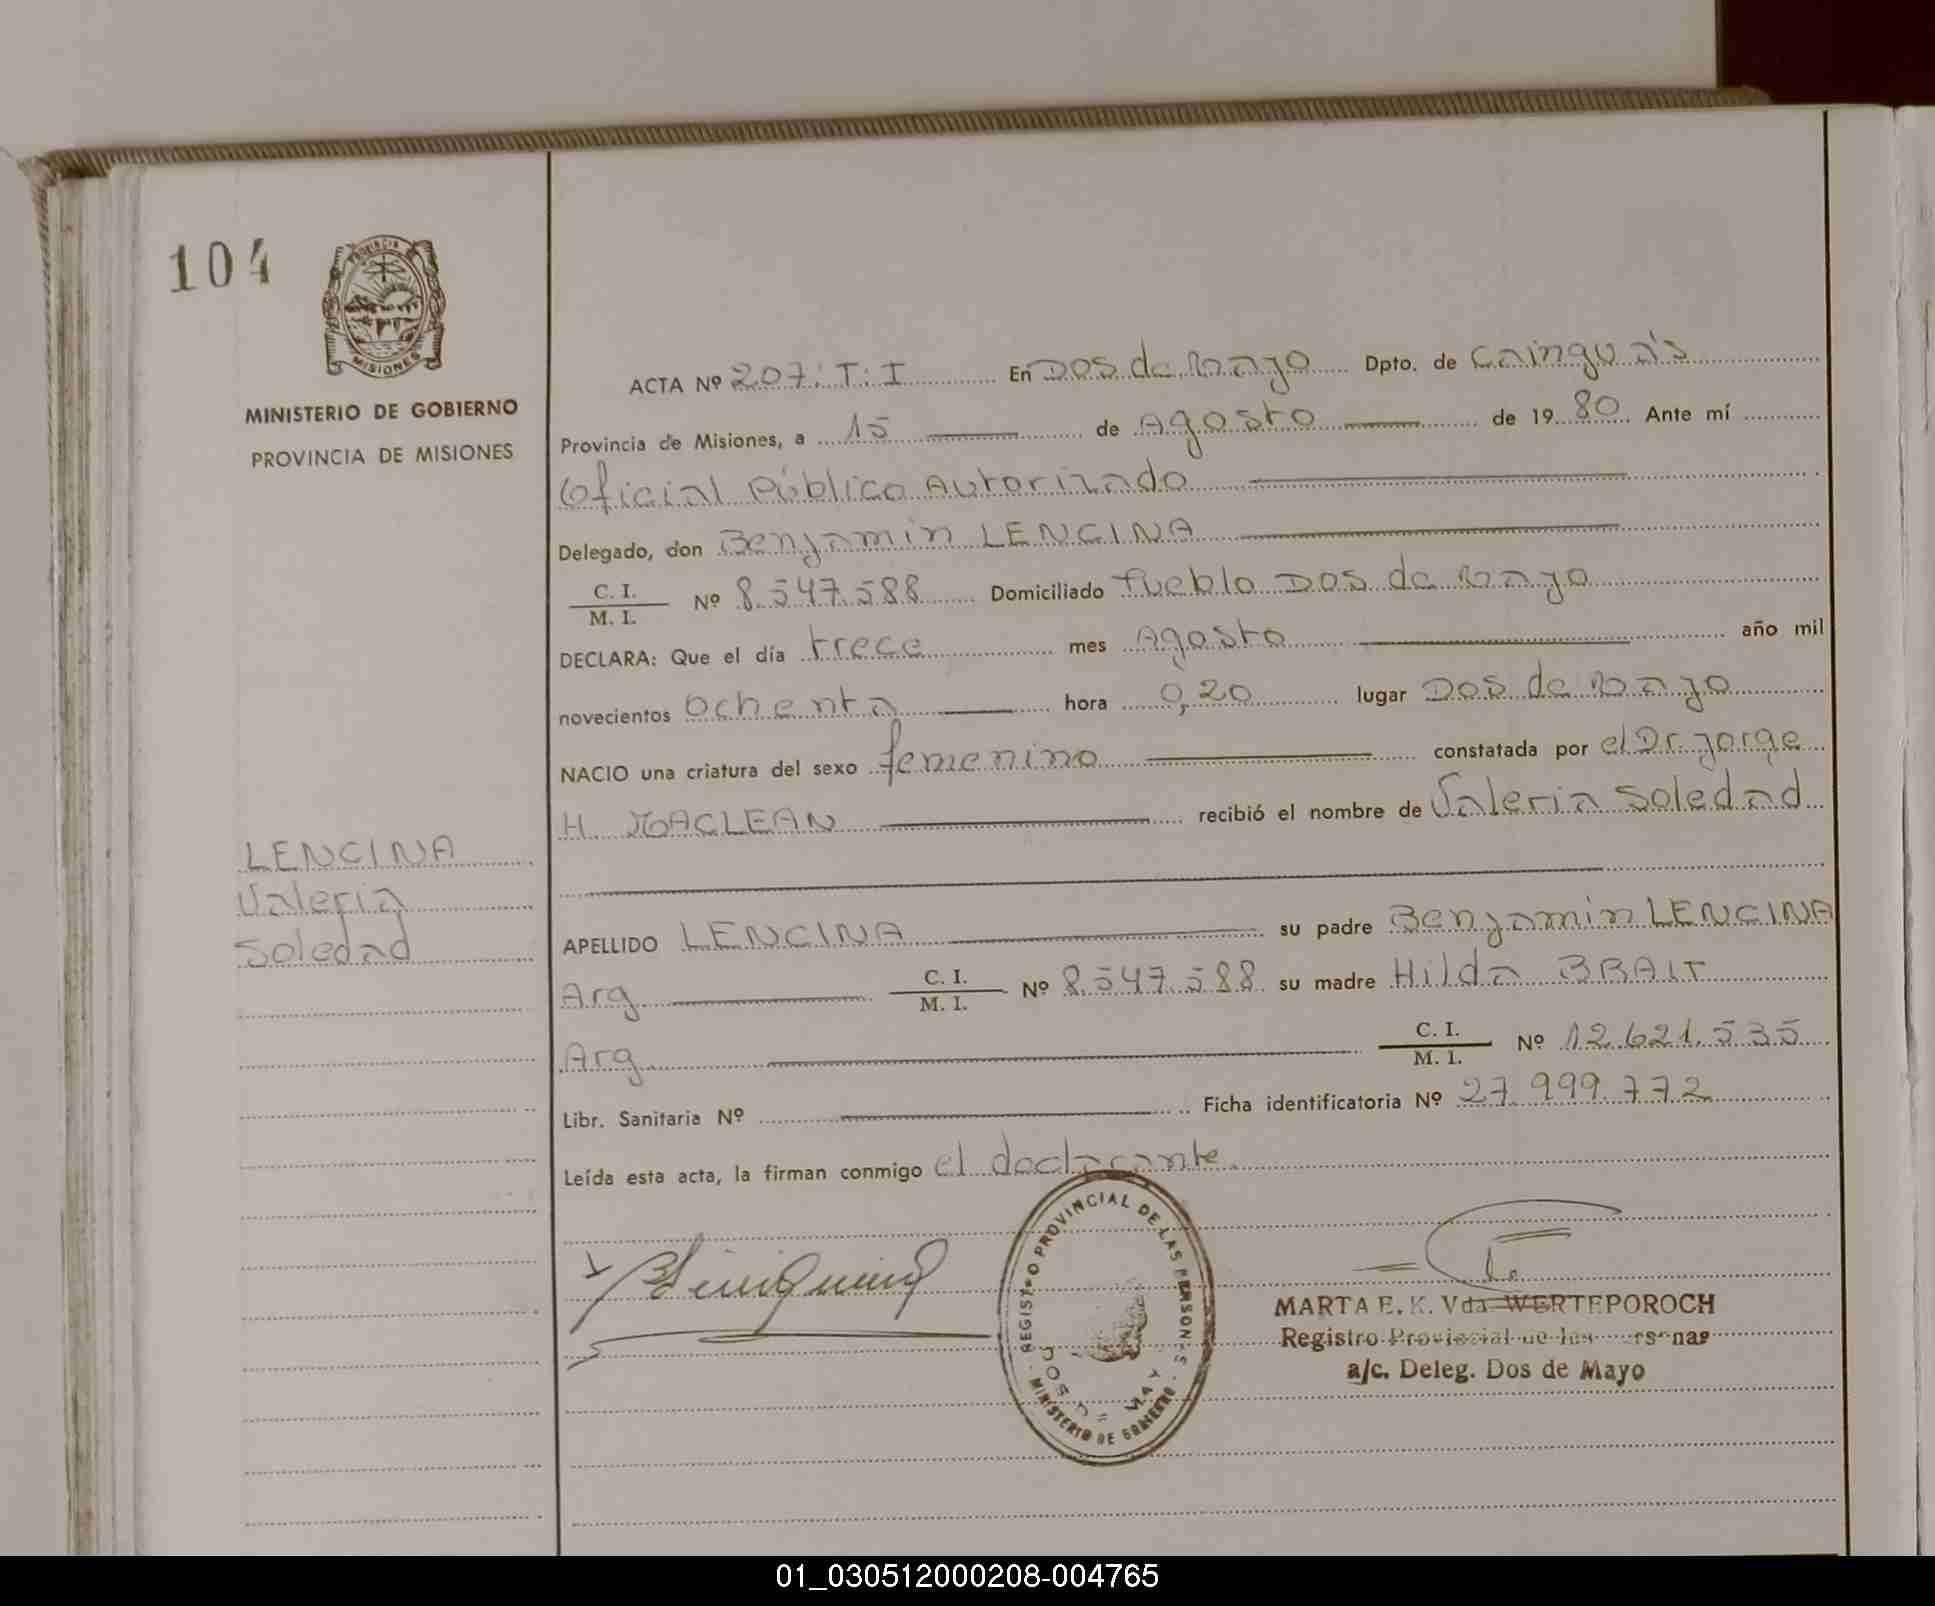 104
PROVINCIA
MISIONES
MINISTERIO DE GOBIERNO
PROVINCIA DE MISIONES
ACTA Nº 207. T. I En Dos de Mayo Dpto. de Cainguás
Provincia de Misiones, a 15 de Agosto de 1980 Ante mí
Oficial Público Autorizado
Delegado, don Benjamin LENCINA
C. I.
M. I. Nº 8.547.588 Domiciliado Pueblo Dos de Mayo
DECLARA: Que el día trece mes Agosto año mil
novecientos ochenta hora 0,20 lugar Dos de Mayo
NACIO una criatura del sexo femenino constatada por el Dr. Jorge
H. MACLEAN recibió el nombre de Valeria Soledad
LENCINA
Valeria
Soledad
APELLIDO LENCINA su padre Benjamin LENCINA
Arg C. I.
M. I. Nº 8.547.588 su madre Hilda BRAIT
Arg C. I.
M. I. Nº 12.621.535
Libr. Sanitaria Nº Ficha identificatoria Nº 27.999.772
Leída esta acta, la firman conmigo el declarante.
REGISTRO PROVINCIAL DE LAS PERSONAS
DOS DE MAYO
MINISTERIO DE GOBIERNO
MARTA E. K. Vda WERTEPOROCH
Registro Provincial de las Personas
a/c. Deleg. Dos de Mayo
01_030512000208-004765